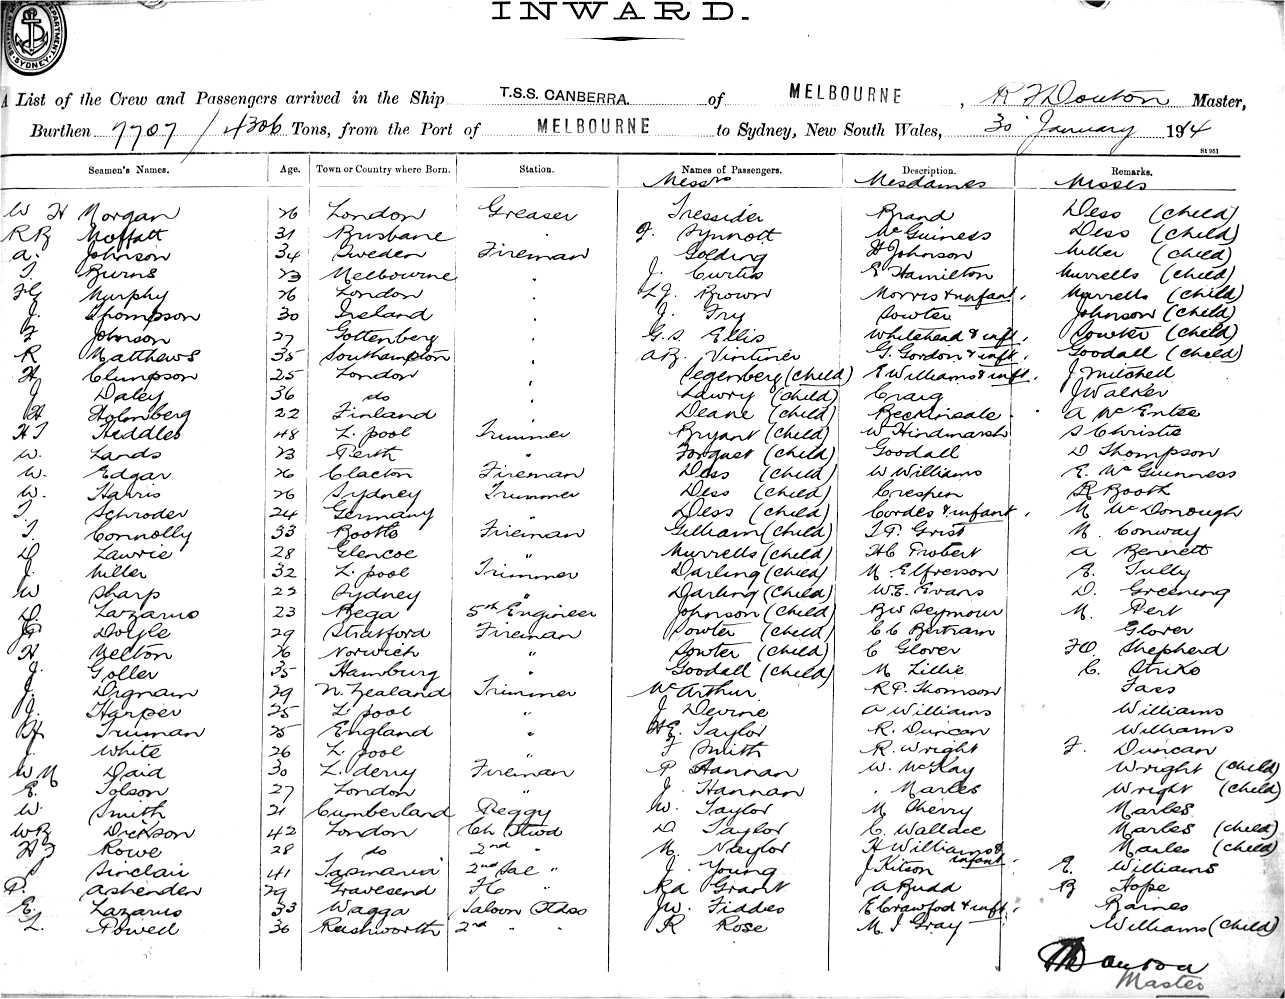 INWARD.
SYDNEY.
A List of the Crew and Passengers arrived in the Ship T.S.S. CANBERRA. of MELBOURNE, Master,
Burthen 7707 / 4306 Tons, from the Port of MELBOURNE to Sydney, New South Wales, 30 January 1914
St 951
Seamen's Names. Age. Town or Country where Born. Station. Names of Passengers. Description. Remarks.
Messrs Mesdames Misses
W H Morgan 26 London Greaser Tressider Brand Dess (child)
R B Moffatt 31 Brisbane " J. Synnott McGuiness Dess (child)
A. Johnson 34 Sweden Fireman Golding H Johnson Miller (child)
T Burns 23 Melbourne " J. Curtis E Hamilton Murrells (child)
Murphy 26 London " L J. Brown Morris & infant. Murrells (child)
J. Thompson 30 Ireland " J. Fry Sowter Johnson (child)
F Johnson 27 Gottenberg " G. S. Ellis Whitehead & inft. Sowter (child)
R Matthews 35 Southampton " A B. Vintiner G. Gordon & inft. Goodall (child)
H Climpson 25 London " Segenberg (child) E Williams & inft. J Mitchell
J Daley 36 do " Lawry (child) Craig J Walker
H Holmberg 22 Finland " Deane (child) Beckinsale A McEntee
H T Heddles 48 L. pool Trimmer Bryant (child) W Hindmarsh S Christie
W. Lands 23 Perth " Forquet (child) Goodall D Thompson
W. Edgar 26 Clacton Fireman Dess (child) W Williams E. McGuinness
W. Harris 26 Sydney Trimmer Dess (child) Crespin R Booth
T Schroder 24 Germany " Dess (child) Cordes & infant. M McDonough
T. Connolly 33 Bootle Fireman Gilliam (child) T. P. Grist M. Conway
D Lawrie 28 Glencoe " Murrells (child) H C Frobert A Bennett
J. Miller 32 L. pool Trimmer Darling (child) M Elfverson E. Tully
W Sharp 23 Sydney " Darling (child) W. E. Evans D. Greening
D. Lazarus 23 Bega 5th Engineer Johnson (child) B W Seymour M. Pert
Doyle 29 Stratford Fireman Sowter (child) C C Bertram Glover
H Melton 26 Norwich " Sowter (child) C Glover F O. Shepherd
J. Goller 35 Hamburg " Goodall (child) M Lillie C.
J. Dignam 29 N. Zealand Trimmer McArthur R. P. Thomson
J. Harper 25 L. pool " J Devine A Williams Williams
H Truman 25 England " H E. Taylor R. Duncan Williams
J. White 26 L. pool " F Smith R. Wright F. Duncan
W M Daid 30 L. derry Fireman P Hannan W. McKay Wright (child)
E. Tolson 27 London " J. Hannan Marles Wright (child)
W Smith 21 Cumberland Peggy W. Taylor M Cherry Marles
W B Dickson 42 London Ch Stwd D Taylor C. Wallace Marles (child)
H J Rowe 28 do 2nd " M Naylor H Williams & infant. Marles (child)
Sinclair 41 Tasmania 2nd Sal " J. Young J Kitson E. Williams
P. Ashenden 29 Gravesend F C " R A Grant A Budd B Hope
E. Lazarus 33 Wagga Saloon Stdss J W. Fiddes E Crawford & inft. Barnes
L. Powell 36 Rushworth 2nd " R Rose M. J Gray Williams (child)
Master